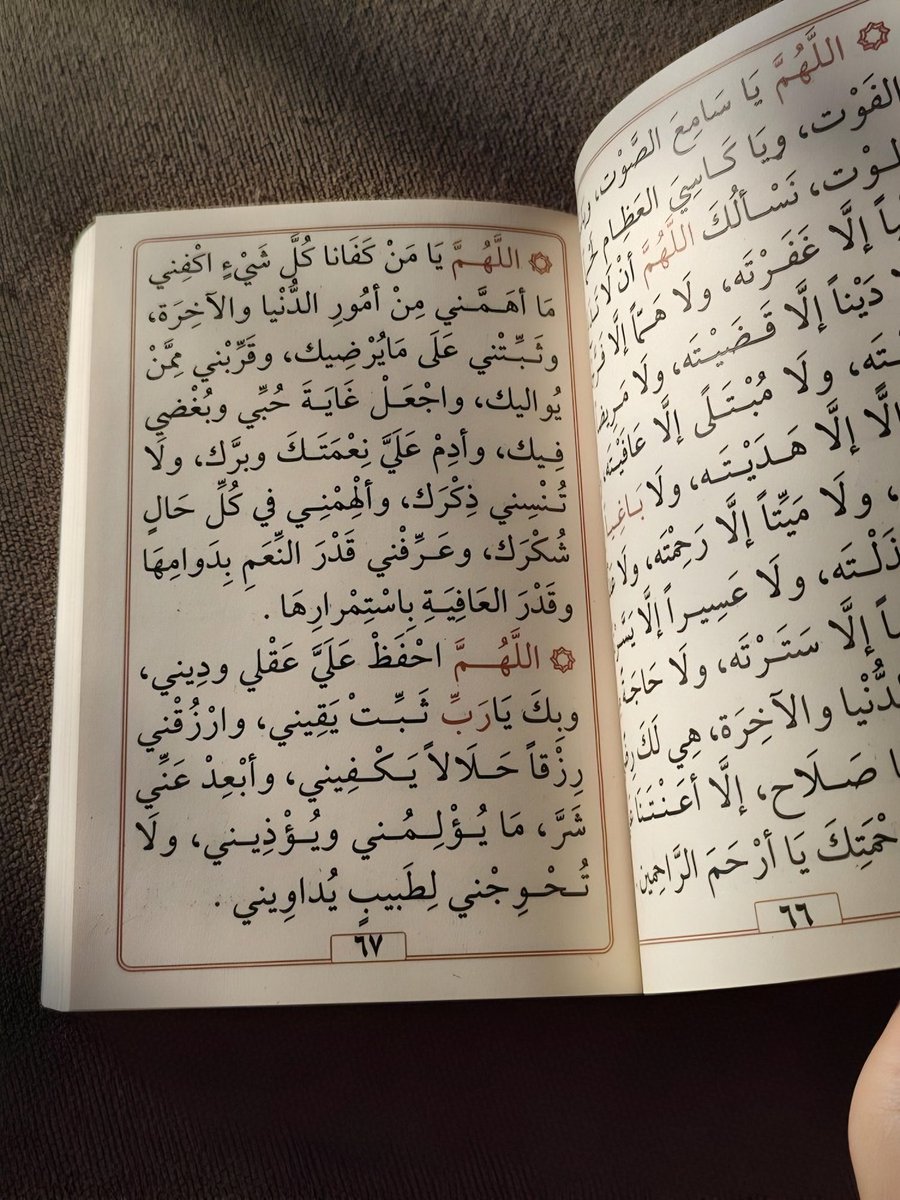 اللَّهُمَّ يَا سَامِعَ الصَّوْت،
الفَوْت، ويَا كَاسِيَ العَظام
نَسْألُكَ اللَّهُمَّ أنْ لَا
إلَّا غَفَرْتَه، ولَا هَمّاً إلَّا
دَيْناً إلَّا قَضَيْتَه، ولَا
ولَا مُبْتَلًى إلَّا عَافَيْتَه
إلَّا هَدَيْتَه، ولَا بَاغِياً
ولَا مَيِّتاً إلَّا رَحِمْتَه،
ولَا عَسِيراً إلَّا
إلَّا سَتَرْتَه، ولَا حَاجَةً
والآخِرَة، هِي لَكَ
صَلَاح، إلَّا أعَنْتَنَا
يَا أرْحَمَ الرَّاحِمِين
٦٦
اللَّهُمَّ يَا مَنْ كَفَانا كُلَّ شَيْءٍ اكْفِني
مَا أهَمَّني مِنْ أمُورِ الدُّنْيا والآخِرَة،
وثَبِّتْني عَلَى مَايُرْضِيك، وقَرِّبْني مِمَّنْ
يُواليك، واجْعَلْ غَايَةَ حُبِّي وبُغْضي
فِيك، وأدِمْ عَلَيَّ نِعْمَتَكَ وبرَّك، ولَا
تُنْسِني ذِكْرَك، وألْهِمْنِي في كُلِّ حَالٍ
شُكْرَك، وعَرِّفْني قَدْرَ النِّعَمِ بِدَوامِهَا
وقَدْرَ العَافِيَةِ بِاسْتِمْرارِهَا .
اللَّهُمَّ احْفَظْ عَلَيَّ عَقْلي ودِيني،
وبِكَ يَارَبِّ ثَبِّتْ يَقِيني، وارْزُقْني
رِزْقاً حَلَالاً يَكْفِيني، وأبْعِدْ عَنِّي
شَرَّ، مَا يُؤْلِمُني ويُؤْذِيني، ولَا
تُحْوِجْني لِطَبيبٍ يُداوِيني .
٦٧